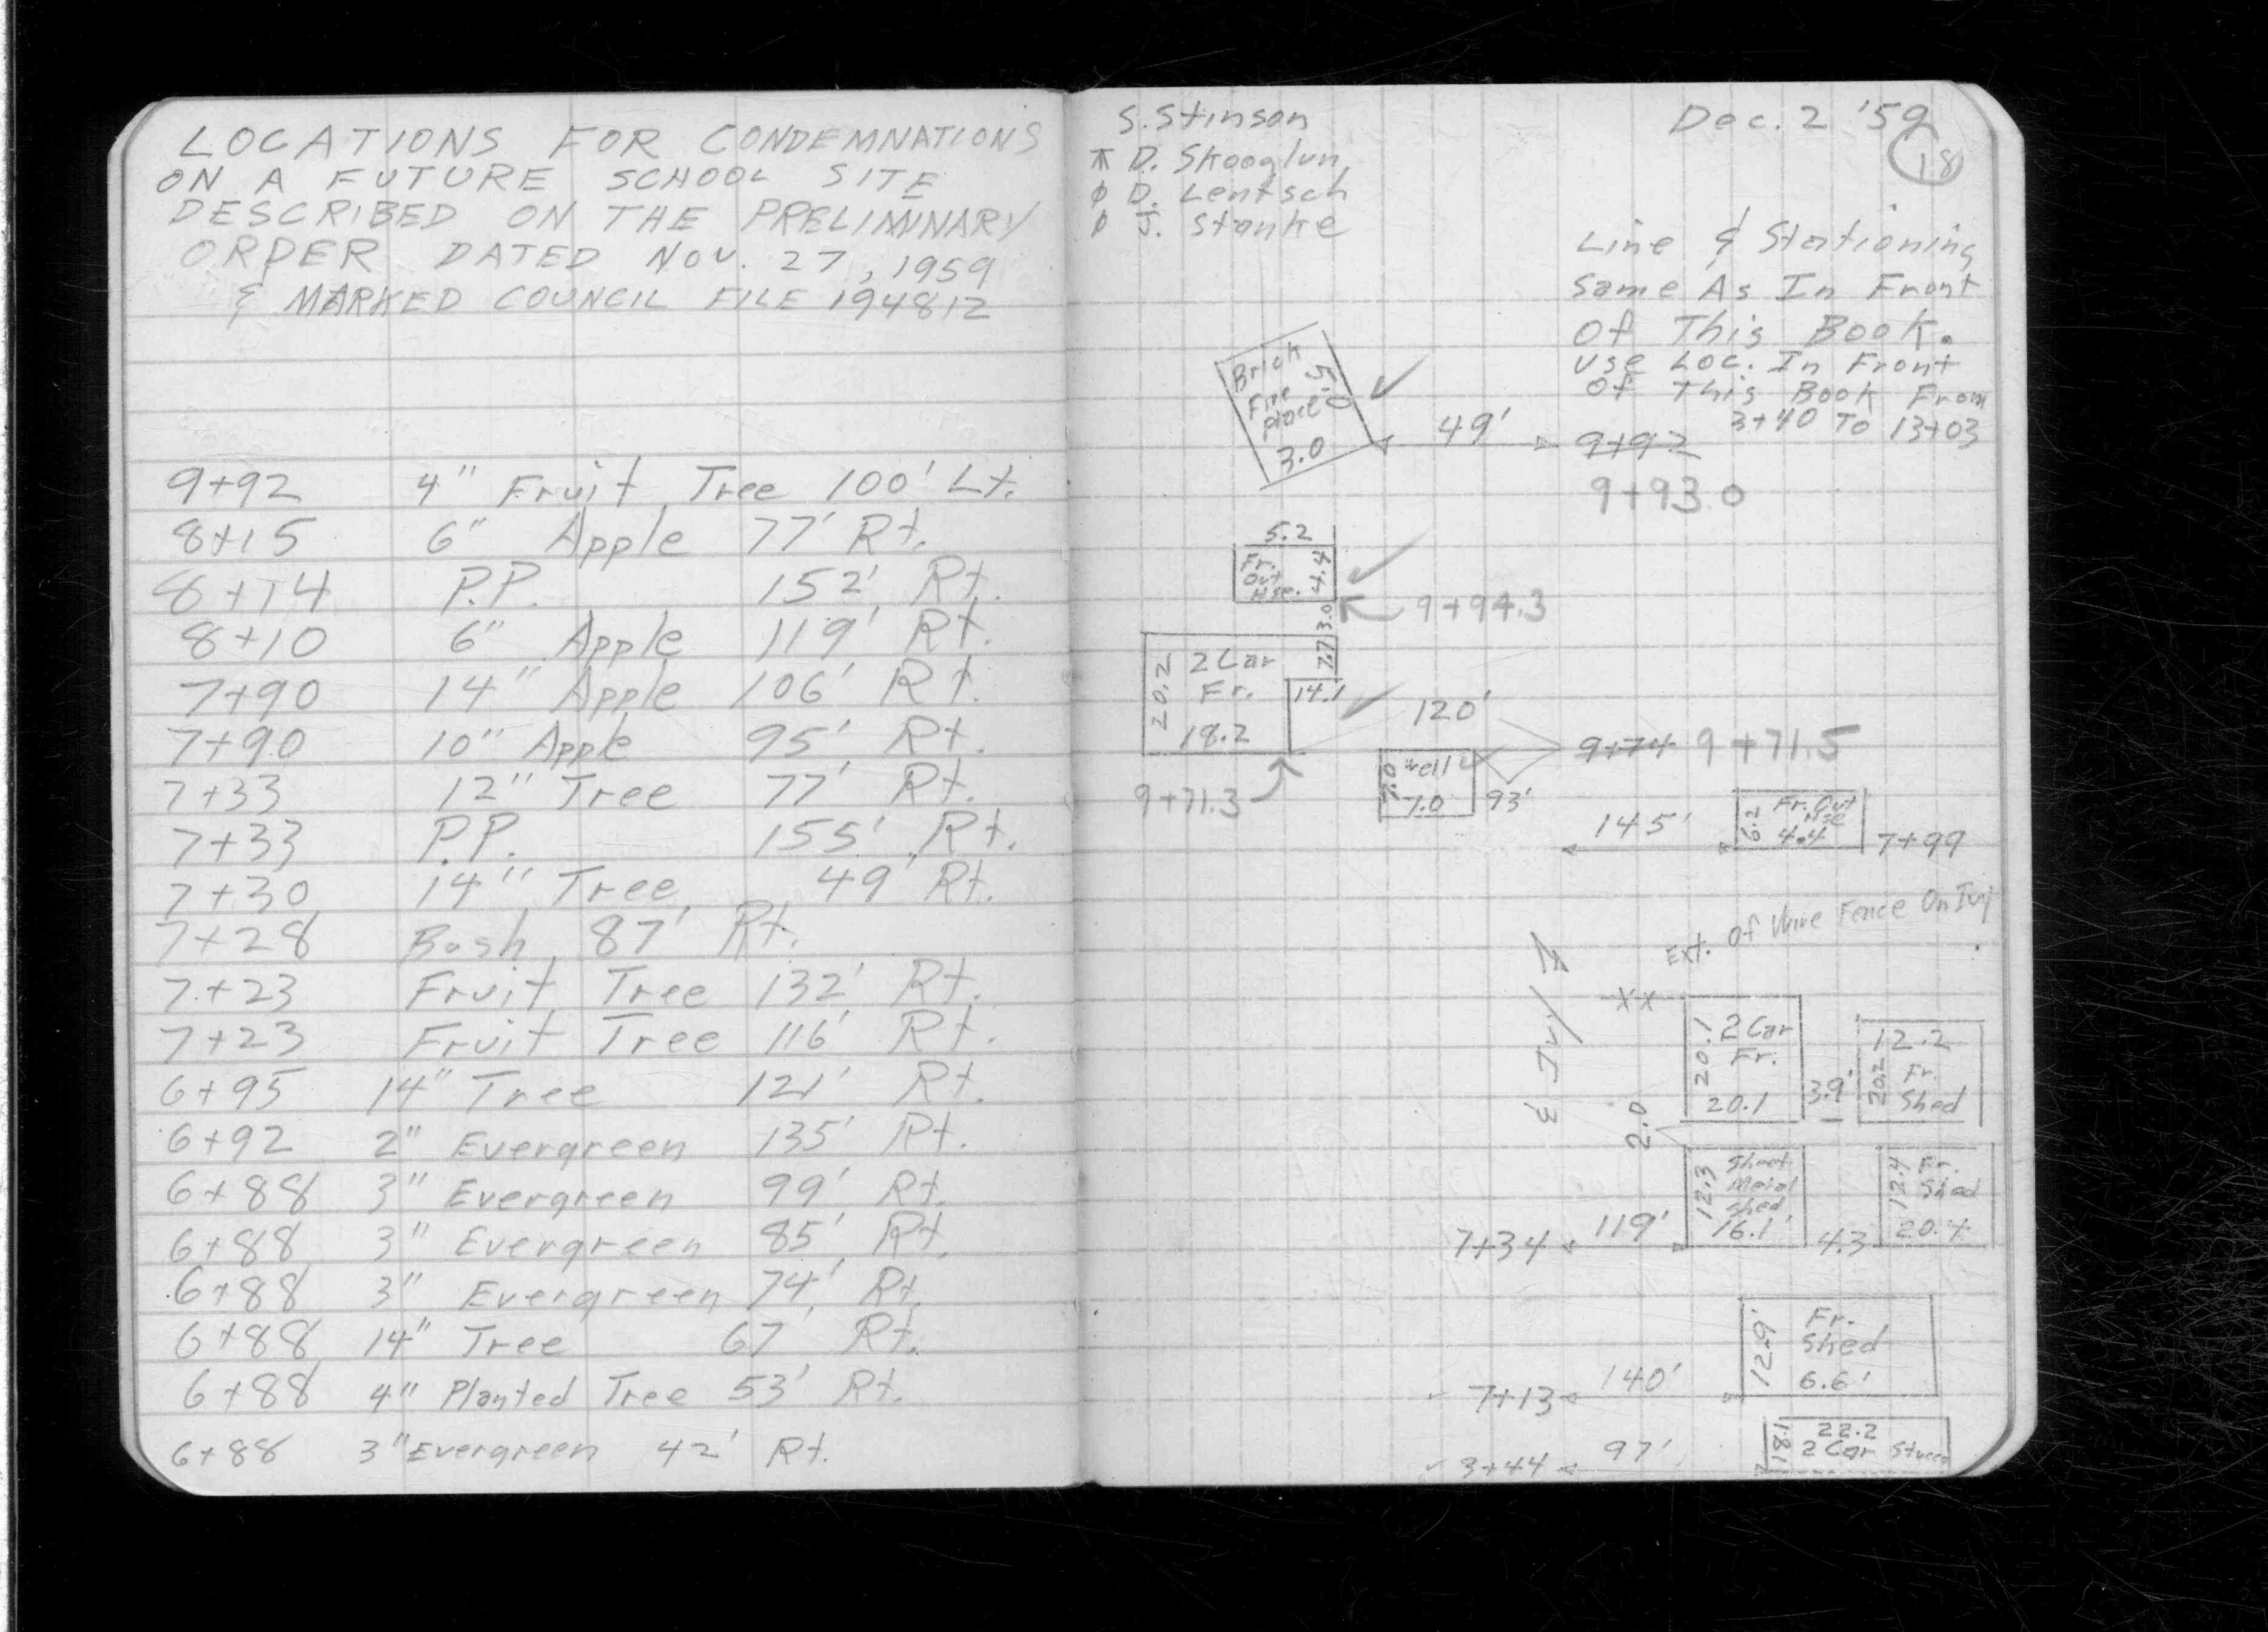 LOCATIONS FOR CONDEMNATIONS
ON A FUTURE SCHOOL SITE
DESCRIBED ON THE PRELIMINARY
ORDER DATED NOV. 27, 1959
& MARKED COUNCIL FILE 194812
9+92 4" Fruit Tree 100' Lt.
8+15 6" Apple 77' Rt.
8+14 P.P. 152' Rt.
8+10 6" Apple 119' Rt.
7+90 14" Apple 106' Rt.
7+90 10" Apple 95' Rt.
7+33 12" Tree 77' Rt.
7+33 P.P. 155' Rt.
7+30 14" Tree 49' Rt.
7+28 Bush 87' Rt.
7+23 Fruit Tree 132' Rt.
7+23 Fruit Tree 116' Rt.
6+95 14" Tree 121' Rt.
6+92 2" Evergreen 135' Rt.
6+88 3" Evergreen 99' Rt.
6+88 3" Evergreen 85' Rt.
6+88 3" Evergreen 74' Rt.
6+88 14" Tree 67' Rt.
6+88 4" Planted Tree 53' Rt.
6+88 3" Evergreen 42' Rt.
S. Stinson
⊼ D. Skooglun
φ D. Lentsch
φ J. Stanke
Dec. 2 '59
18
Line & Stationing
Same As In Front
Of This Book.
Use Loc. In Front
Of This Book From
3+40 To 13+03
Brick
Fire
place
5.0
3.0
49'
9+92
9+93.0
5.2
Fr.
Out
Hse.
4.4
3.0
9+94.3
2 Car
Fr.
20.2
18.2
7.7
14.1
9+71.3
120'
Well
7.0
7.0
93'
9+74 9+71.5
145'
Fr. Out
Hse
6.2
4.4
7+99
Ext. Of Wire Fence On Ivy
x x
E. Ivy
2 Car
Fr.
20.1
20.1
3.9'
12.2
Fr.
Shed
20.2
2.0
Sheet
Metal
Shed
12.3
16.1'
7+34
119'
4.3
Fr.
Shed
12.4
20.4
Fr.
Shed
12.9'
6.6'
7+13
140'
22.2
2 Car Stucco
18.1
3+44
97'